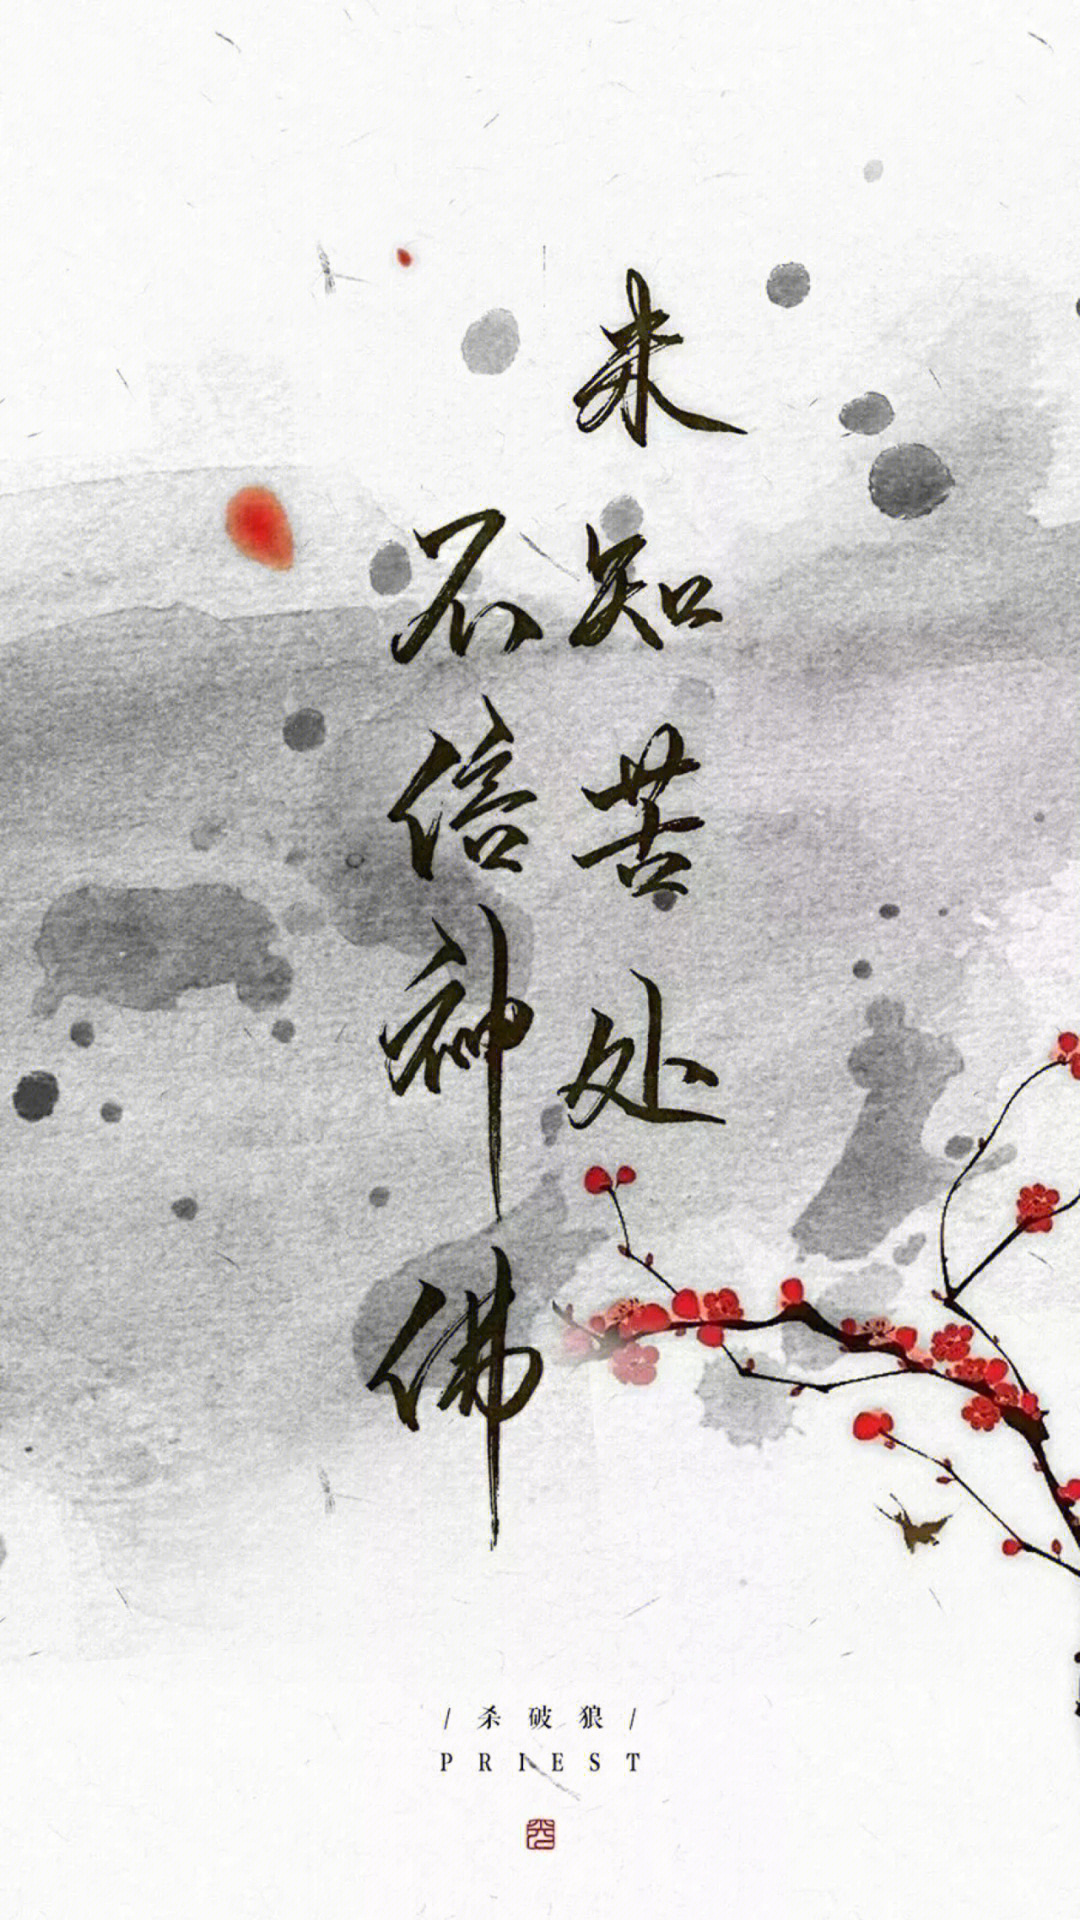 未知苦处
不信神佛
/杀破狼/
PRIEST